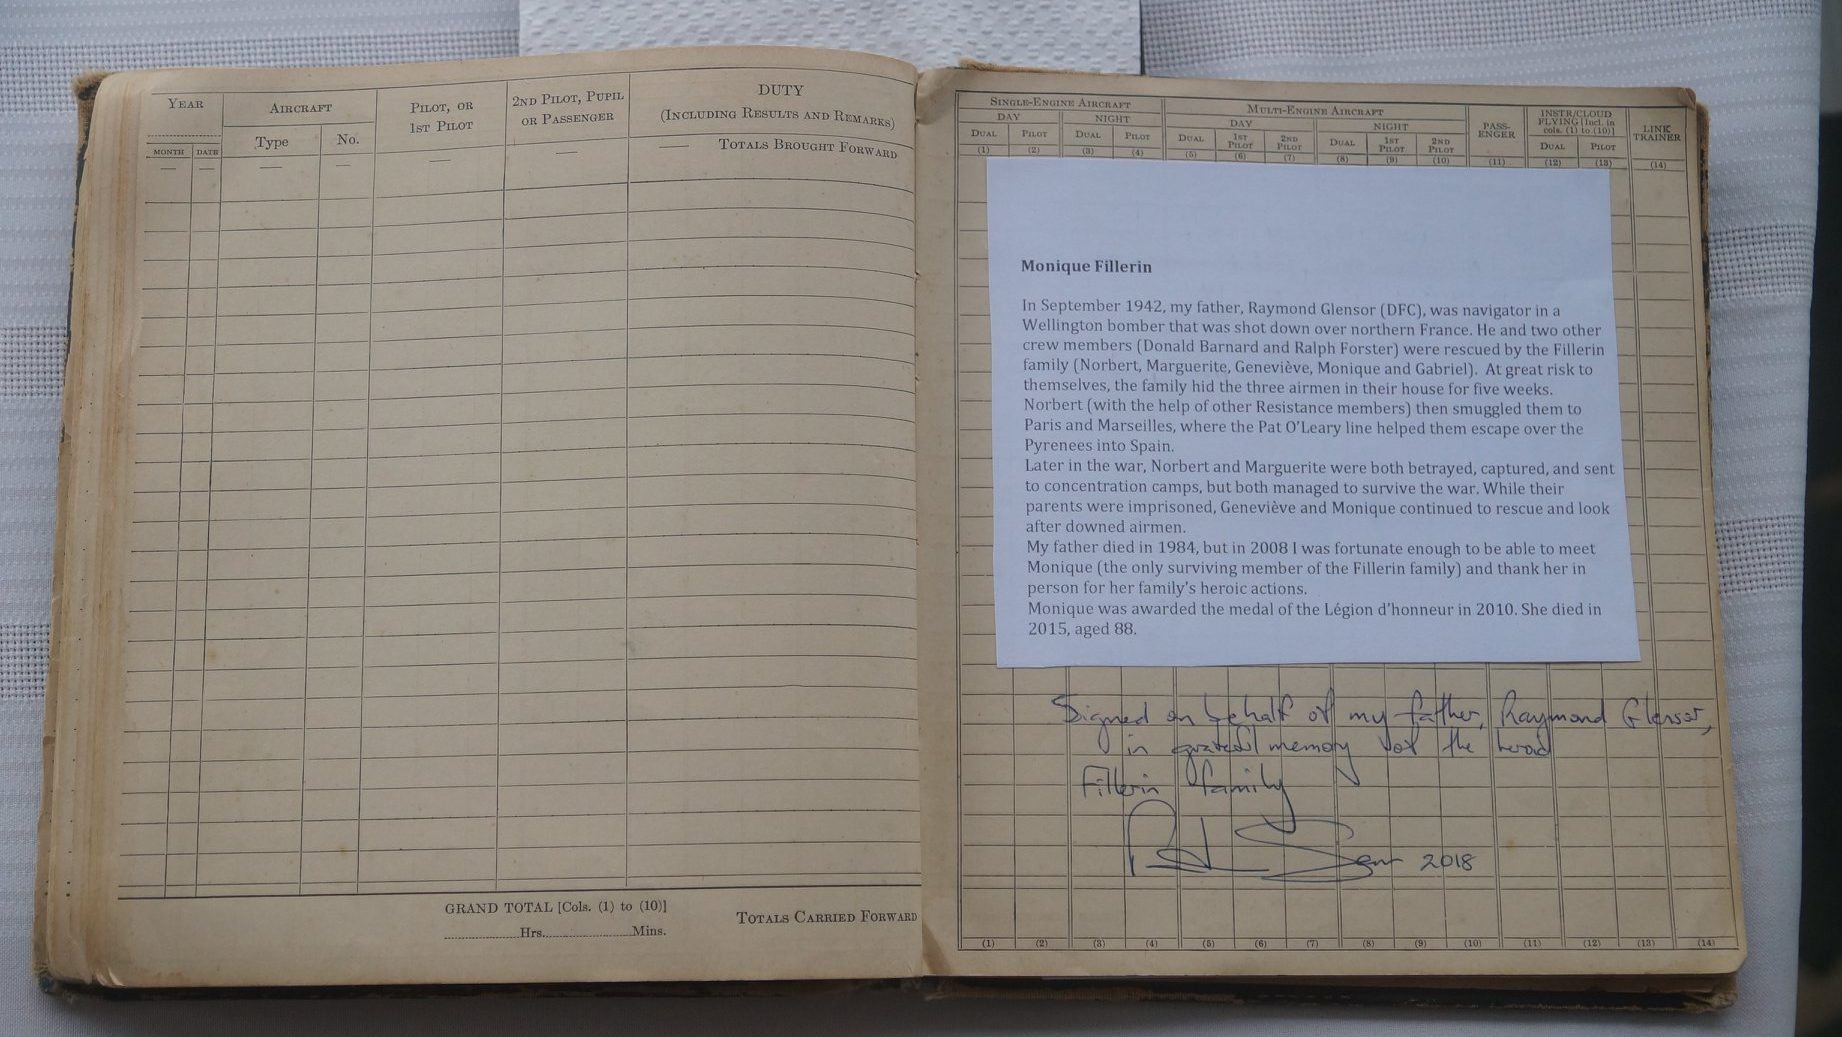 YEAR
AIRCRAFT
PILOT, OR
1ST PILOT
2ND PILOT, PUPIL
OR PASSENGER
DUTY
(INCLUDING RESULTS AND REMARKS)
MONTH DATE
Type No.
— — — — — — TOTALS BROUGHT FORWARD
GRAND TOTAL [Cols. (1) to (10)]
Hrs. Mins.
TOTALS CARRIED FORWARD
SINGLE-ENGINE AIRCRAFT
MULTI-ENGINE AIRCRAFT
PASS-
ENGER
INSTR/CLOUD
FLYING [Incl. in
cols. (1) to (10)]
LINK
TRAINER
DAY NIGHT DAY NIGHT
DUAL PILOT DUAL PILOT DUAL 1ST PILOT 2ND PILOT DUAL 1ST PILOT 2ND PILOT DUAL PILOT
(1) (2) (3) (4) (5) (6) (7) (8) (9) (10) (11) (12) (13) (14)
Monique Fillerin
In September 1942, my father, Raymond Glensor (DFC), was navigator in a
Wellington bomber that was shot down over northern France. He and two other
crew members (Donald Barnard and Ralph Forster) were rescued by the Fillerin
family (Norbert, Marguerite, Geneviève, Monique and Gabriel). At great risk to
themselves, the family hid the three airmen in their house for five weeks.
Norbert (with the help of other Resistance members) then smuggled them to
Paris and Marseilles, where the Pat O'Leary line helped them escape over the
Pyrenees into Spain.
Later in the war, Norbert and Marguerite were both betrayed, captured, and sent
to concentration camps, but both managed to survive the war. While their
parents were imprisoned, Geneviève and Monique continued to rescue and look
after downed airmen.
My father died in 1984, but in 2008 I was fortunate enough to be able to meet
Monique (the only surviving member of the Fillerin family) and thank her in
person for her family's heroic actions.
Monique was awarded the medal of the Légion d'honneur in 2010. She died in
2015, aged 88.
Signed on behalf of my father, Raymond Glensor,
in grateful memory of the heroic
Fillerin family
2018
(1) (2) (3) (4) (5) (6) (7) (8) (9) (10) (11) (12) (13) (14)